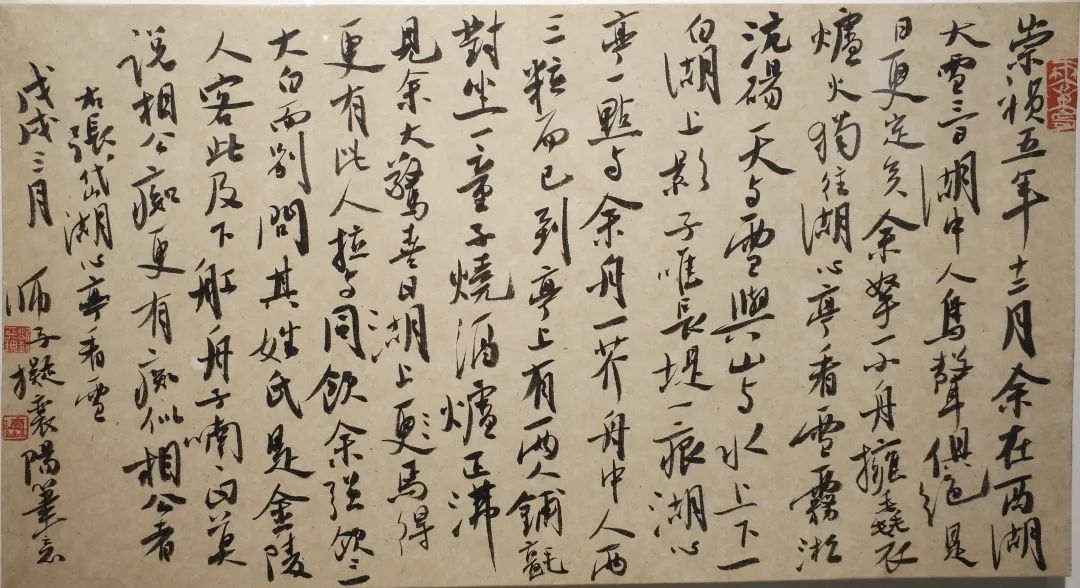 崇禎五年十二月余在西湖
大雪三日湖中人鳥聲俱絕是
日更定矣余拏一小舟擁毳衣
爐火獨往湖心亭看雪霧淞
沆碭天与雲與山与水上下一
白湖上影子唯長堤一痕湖心
亭一點与余舟一芥舟中人兩
三粒而已到亭上有兩人鋪氈
對坐一童子燒酒爐正沸
見余大驚喜曰湖上更焉得
更有此人拉与同飲余強飲三
大白而別問其姓氏是金陵
人客此及下舡舟子喃曰莫
說相公痴更有痴似相公者
右張岱湖心亭看雪
戊戌三月 師子擬襄陽筆意